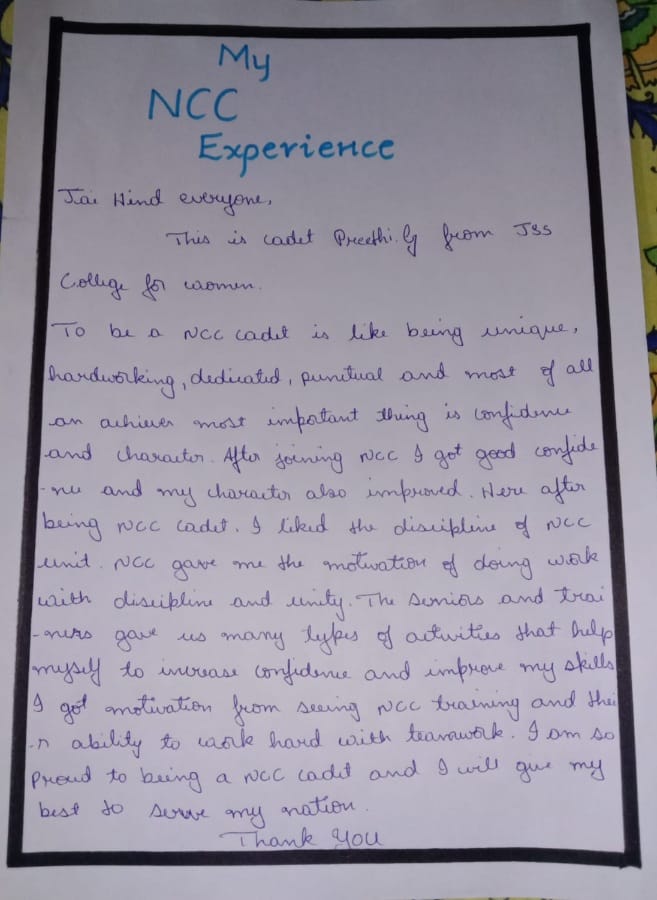 My
NCC
Experience
Jai Hind everyone,
This is cadet Preethi.G from JSS
College for women.
To be a NCC cadet is like being unique,
hardworking, dedicated, punctual and most of all
an achiever most important thing is confidence
and character. After joining NCC I got good confide
-nce and my character also improved. Here after
being NCC cadet. I liked the discipline of NCC
unit. NCC gave me the motivation of doing work
with discipline and unity. The seniors and trai
-ners gave us many types of activities that help
myself to increase confidence and improve my skills
I got motivation from seeing NCC training and thei
-r ability to work hard with teamwork. I am so
Proud to being a NCC cadet and I will give my
best to serve my nation.
Thank You